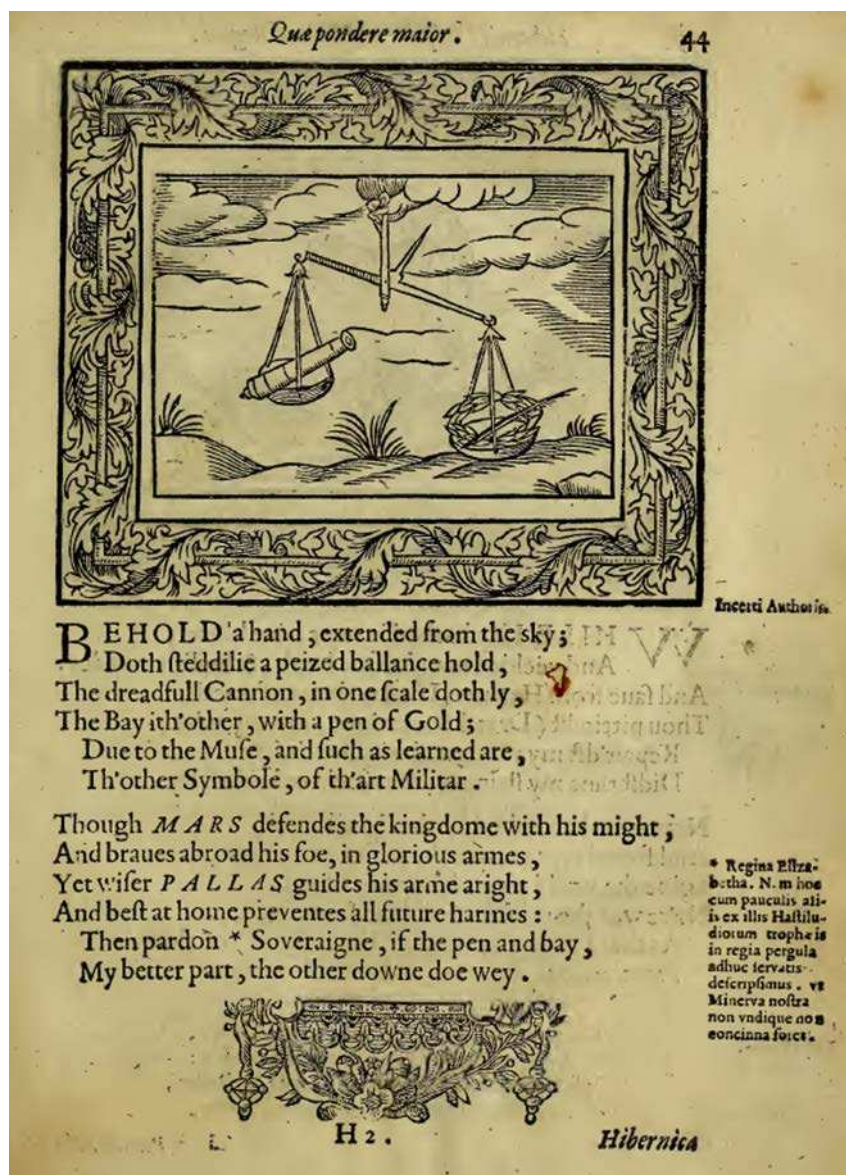 Quæ pondere maior.
44
Incerti Authoris.
BEHOLD a hand, extended from the sky;
Doth ſteddilie a peized ballance hold,
The dreadfull Cannon, in one ſcale doth ly,
The Bay ith'other, with a pen of Gold;
Due to the Muſe, and ſuch as learned are,
Th'other Symbole, of th'art Militar.
Though MARS defendes the kingdome with his might,
And braues abroad his foe, in glorious armes,
Yet wiſer PALLAS guides his arme aright,
And beſt at home preventes all future harmes:
Then pardon * Soveraigne, if the pen and bay,
My better part, the other downe doe wey.
* Regina Eliza-
betha. N.m hoc
cum pauculis ali-
is ex illis Haſtilu-
diorum trophæis
in regia pergula
adhuc ſervatis
deſcripſimus. vt
Minerva noſtra
non vndique non
concinna foret.
H 2.
Hibernica